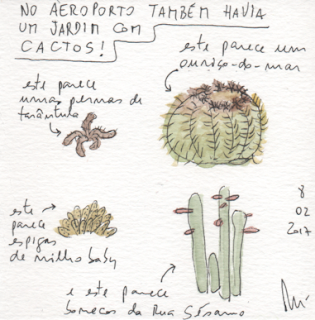 NO AEROPORTO TAMBÉM HAVIA
UM JARDIM COM
CACTOS!
este parece um
ouriço-do-mar
este parece
umas pernas de
tarântula
este
parece
espigas
de milho baby
e este parece
bonecos da Rua Sésamo
8
02
2017